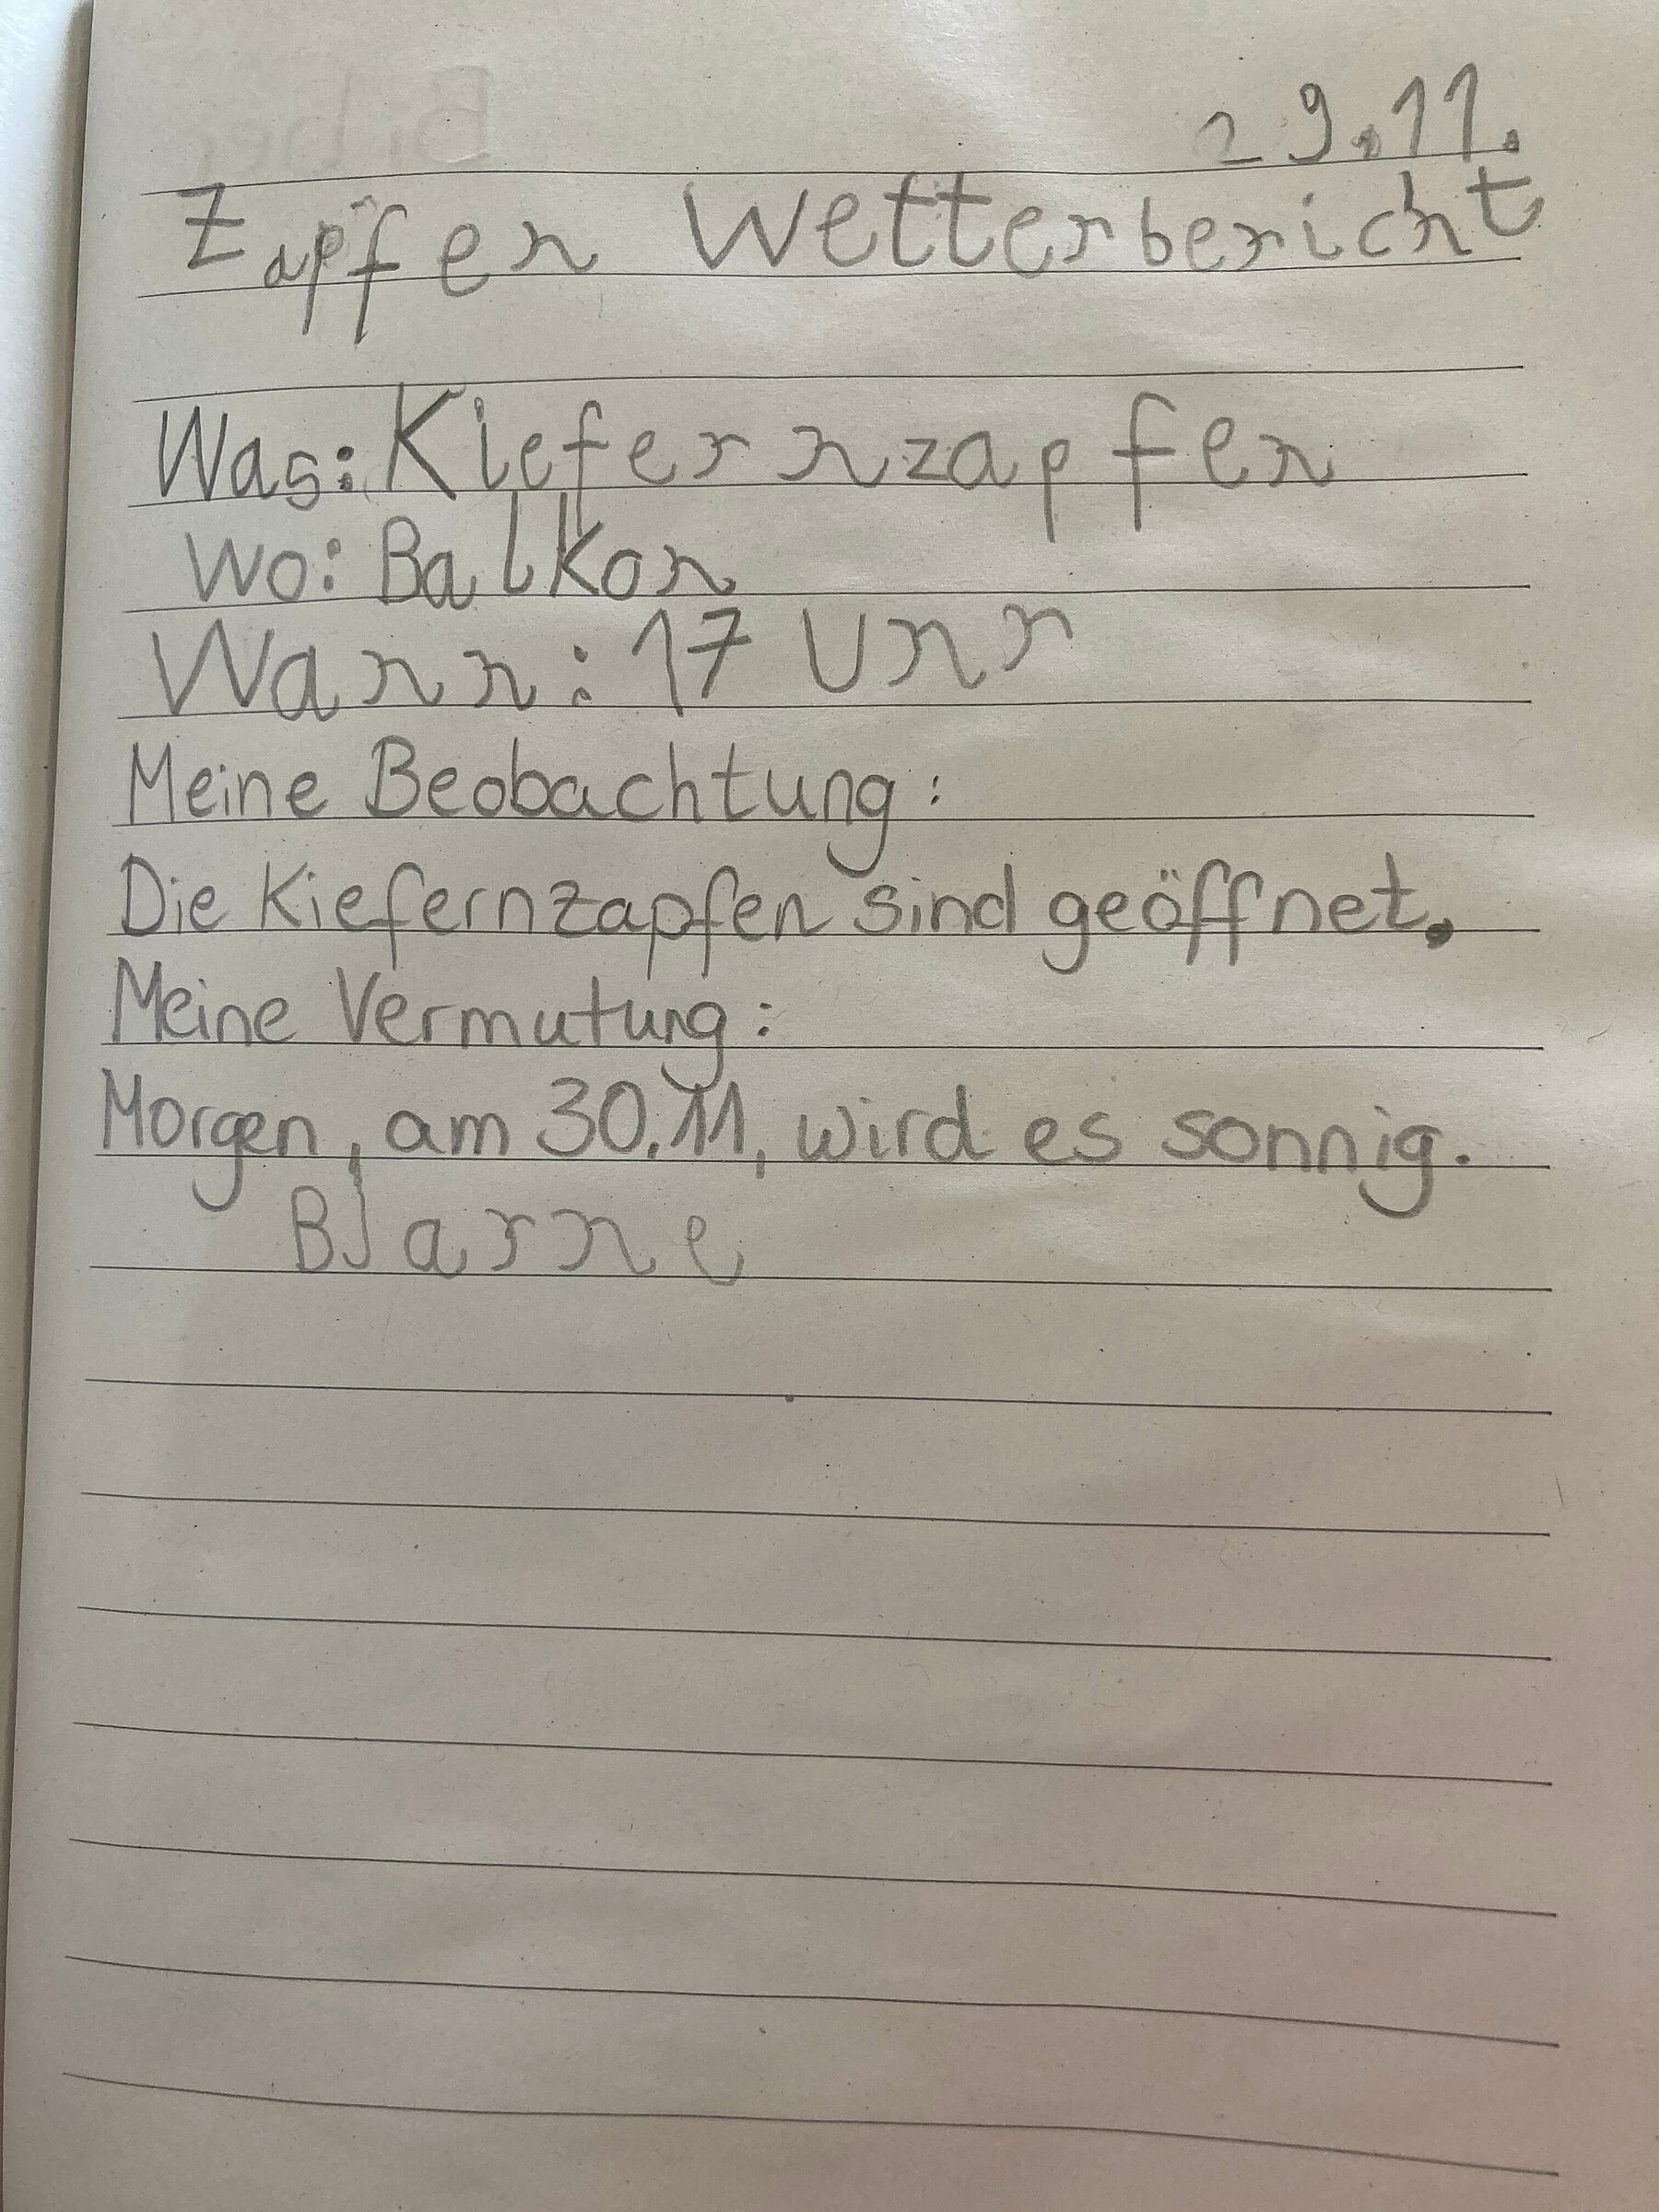 29.11.
Zapfen Wetterbericht
Was: Kiefernzapfen
Wo: Balkon
Wann: 17 Uhr
Meine Beobachtung:
Die Kiefernzapfen sind geöffnet.
Meine Vermutung:
Morgen, am 30.11, wird es sonnig.
Bjarne